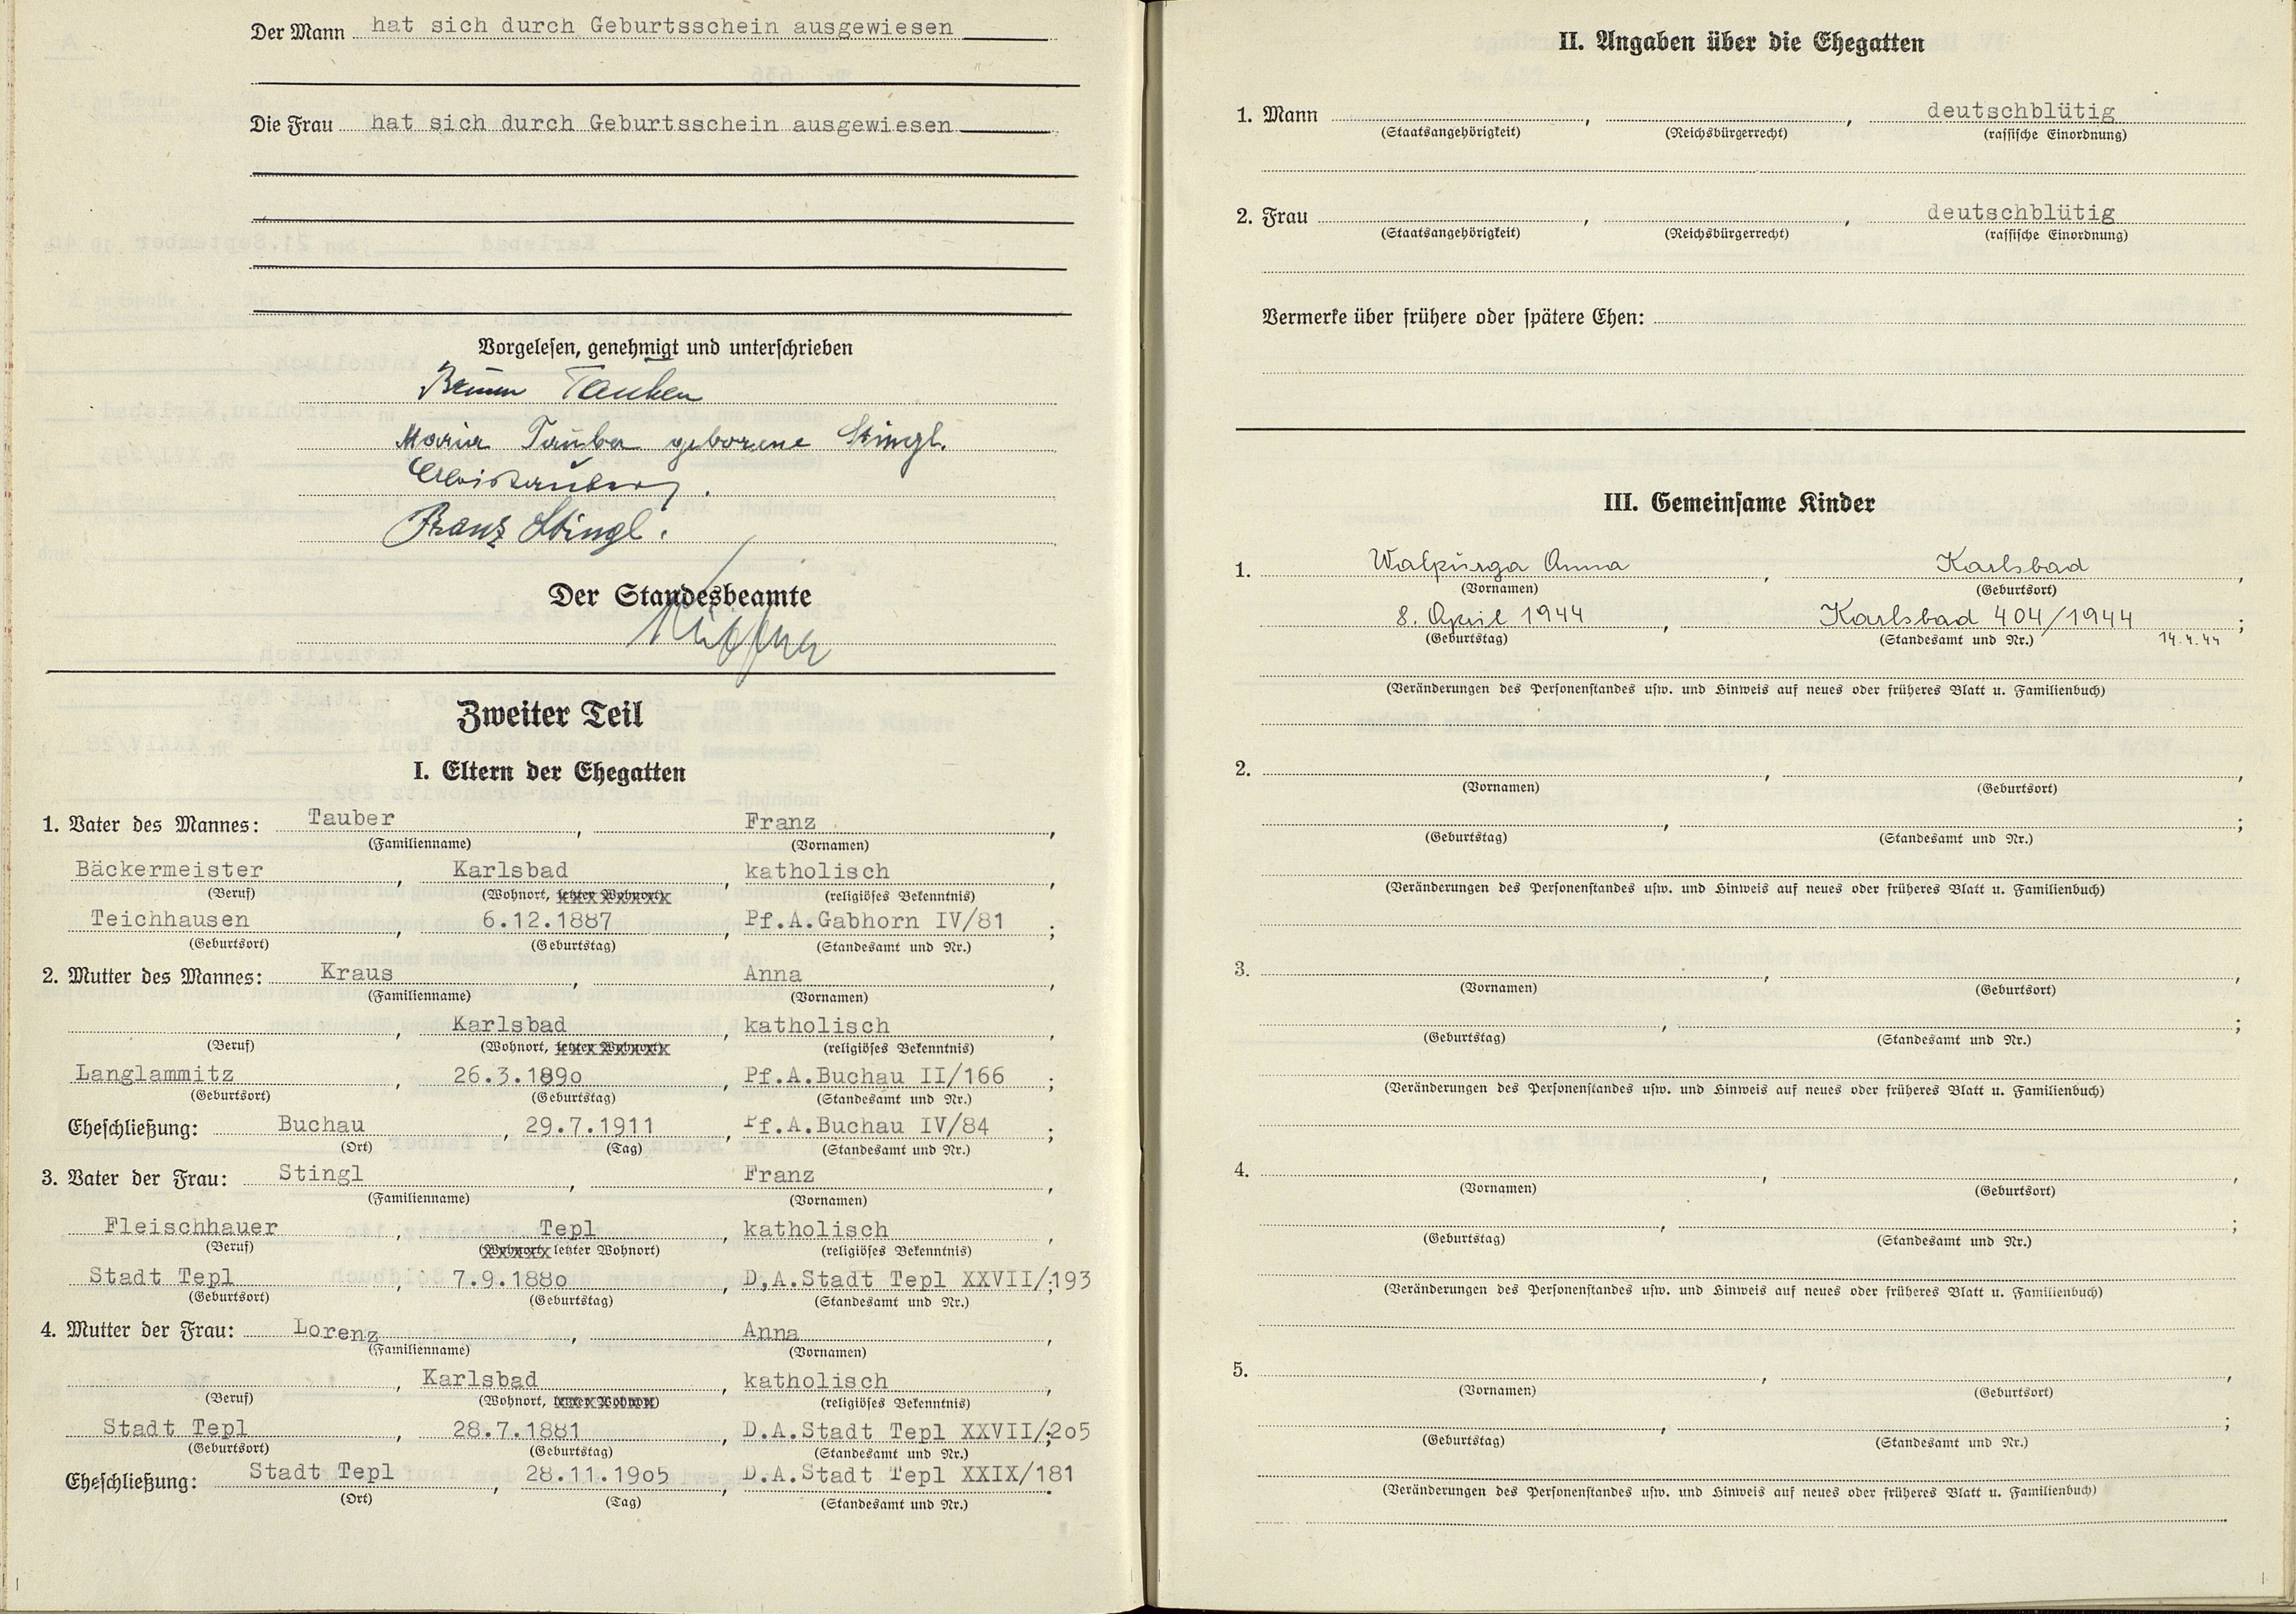 Der Mann hat sich durch Geburtsschein ausgewiesen
Die Frau hat sich durch Geburtsschein ausgewiesen
Vorgelesen, genehmigt und unterschrieben
Bruno Tauber
Maria Tauber geborene Stingl.
Alois Tauber
Franz Stingl.
Der Standesbeamte
Zweiter Teil
I. Eltern der Ehegatten
1. Vater des Mannes: Tauber, Franz,
(Familienname) (Vornamen)
Bäckermeister, Karlsbad, katholisch,
(Beruf) (Wohnort, letzter Wohnort) (religiöses Bekenntnis)
Teichhausen, 6.12.1887, Pf.A.Gabhorn IV/81;
(Geburtsort) (Geburtstag) (Standesamt und Nr.)
2. Mutter des Mannes: Kraus, Anna,
(Familienname) (Vornamen)
, Karlsbad, katholisch,
(Beruf) (Wohnort, letzter Wohnort) (religiöses Bekenntnis)
Langlammitz, 26.3.189o, Pf.A.Buchau II/166;
(Geburtsort) (Geburtstag) (Standesamt und Nr.)
Eheschließung: Buchau, 29.7.1911, Pf.A.Buchau IV/84;
(Ort) (Tag) (Standesamt und Nr.)
3. Vater der Frau: Stingl, Franz,
(Familienname) (Vornamen)
Fleischhauer, Tepl, katholisch,
(Beruf) (Wohnort, letzter Wohnort) (religiöses Bekenntnis)
Stadt Tepl, 7.9.188o, D.A.Stadt Tepl XXVII/193;
(Geburtsort) (Geburtstag) (Standesamt und Nr.)
4. Mutter der Frau: Lorenz, Anna,
(Familienname) (Vornamen)
, Karlsbad, katholisch,
(Beruf) (Wohnort, letzter Wohnort) (religiöses Bekenntnis)
Stadt Tepl, 28.7.1881, D.A.Stadt Tepl XXVII/2o5;
(Geburtsort) (Geburtstag) (Standesamt und Nr.)
Eheschließung: Stadt Tepl, 28.11.19o5, D.A.Stadt Tepl XXIX/181.
(Ort) (Tag) (Standesamt und Nr.)
II. Angaben über die Ehegatten
1. Mann , , deutschblütig
(Staatsangehörigkeit) (Reichsbürgerrecht) (rassische Einordnung)
2. Frau , , deutschblütig
(Staatsangehörigkeit) (Reichsbürgerrecht) (rassische Einordnung)
Vermerke über frühere oder spätere Ehen:
III. Gemeinsame Kinder
1. Walpurga Anna, Karlsbad,
(Vornamen) (Geburtsort)
8. April 1944, Karlsbad 404/1944;
(Geburtstag) (Standesamt und Nr.) 14.4.44
(Veränderungen des Personenstandes usw. und Hinweis auf neues oder früheres Blatt u. Familienbuch)
2. , ,
(Vornamen) (Geburtsort)
, ;
(Geburtstag) (Standesamt und Nr.)
(Veränderungen des Personenstandes usw. und Hinweis auf neues oder früheres Blatt u. Familienbuch)
3. , ,
(Vornamen) (Geburtsort)
, ;
(Geburtstag) (Standesamt und Nr.)
(Veränderungen des Personenstandes usw. und Hinweis auf neues oder früheres Blatt u. Familienbuch)
4. , ,
(Vornamen) (Geburtsort)
, ;
(Geburtstag) (Standesamt und Nr.)
(Veränderungen des Personenstandes usw. und Hinweis auf neues oder früheres Blatt u. Familienbuch)
5. , ,
(Vornamen) (Geburtsort)
, ;
(Geburtstag) (Standesamt und Nr.)
(Veränderungen des Personenstandes usw. und Hinweis auf neues oder früheres Blatt u. Familienbuch)